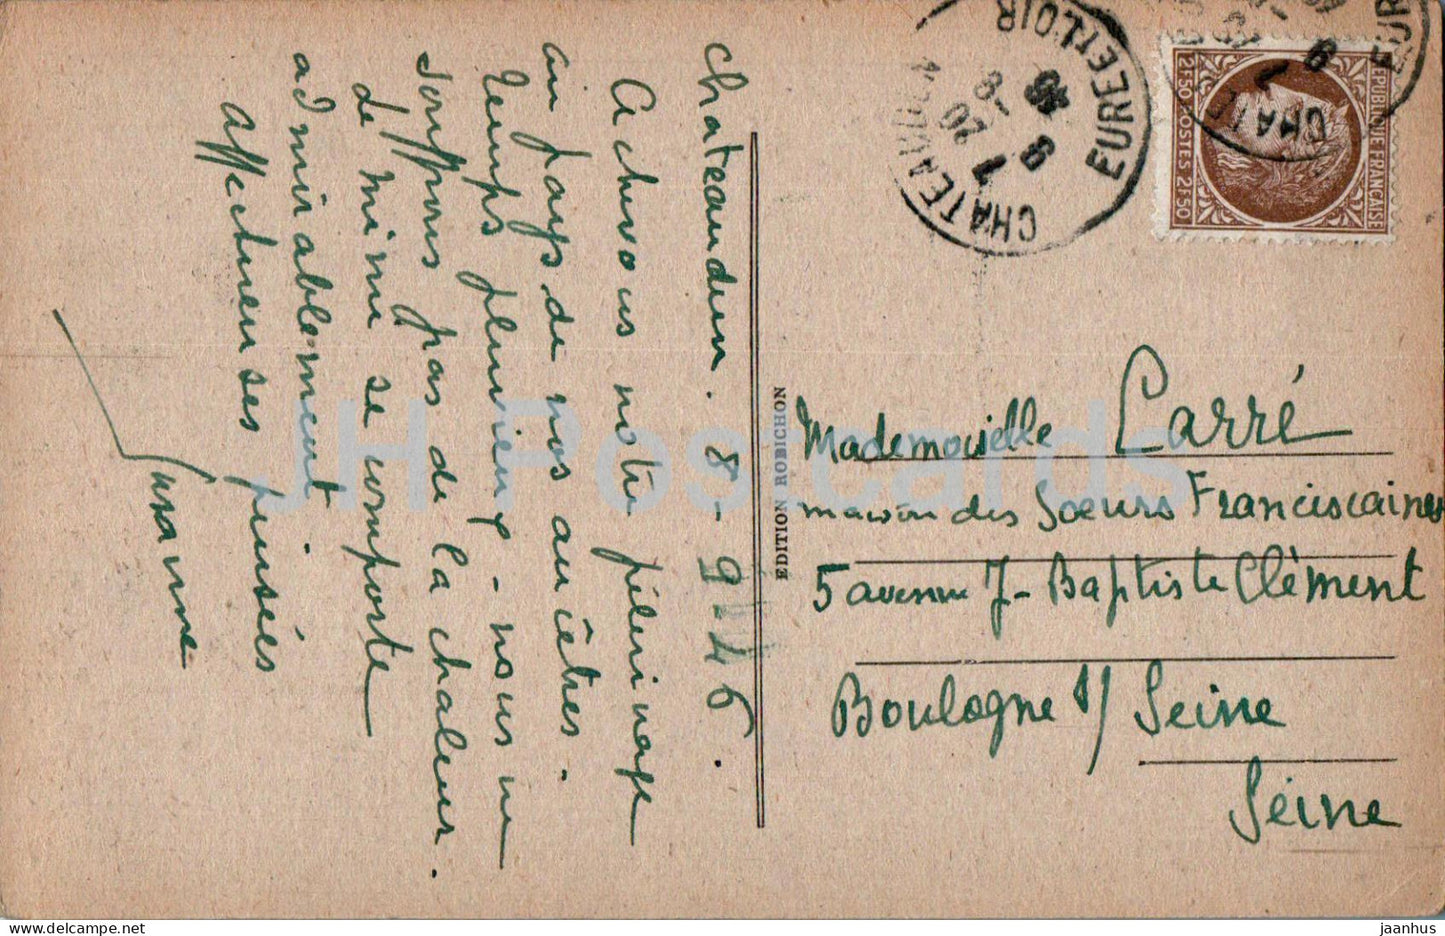 Chateaudun. 8-9 46.
Achevons notre pélerinage
au pays de nos ancêtres.
Temps pluvieux - nous ne
souffrons pas de la chaleur.
de mimi se comporte
admirablement.
Affectueuses pensées
Suzanne
EDITION ROBICHON
CHATEAUDUN
EURE ET LOIR
REPUBLIQUE FRANÇAISE
2F50 POSTES 2F50
Mademoiselle Carré
maison des Soeurs Franciscaines
5 avenue J-Baptiste Clément
Boulogne s/ Seine
Seine
JH Postcards
www.delcampe.net
jaanhus